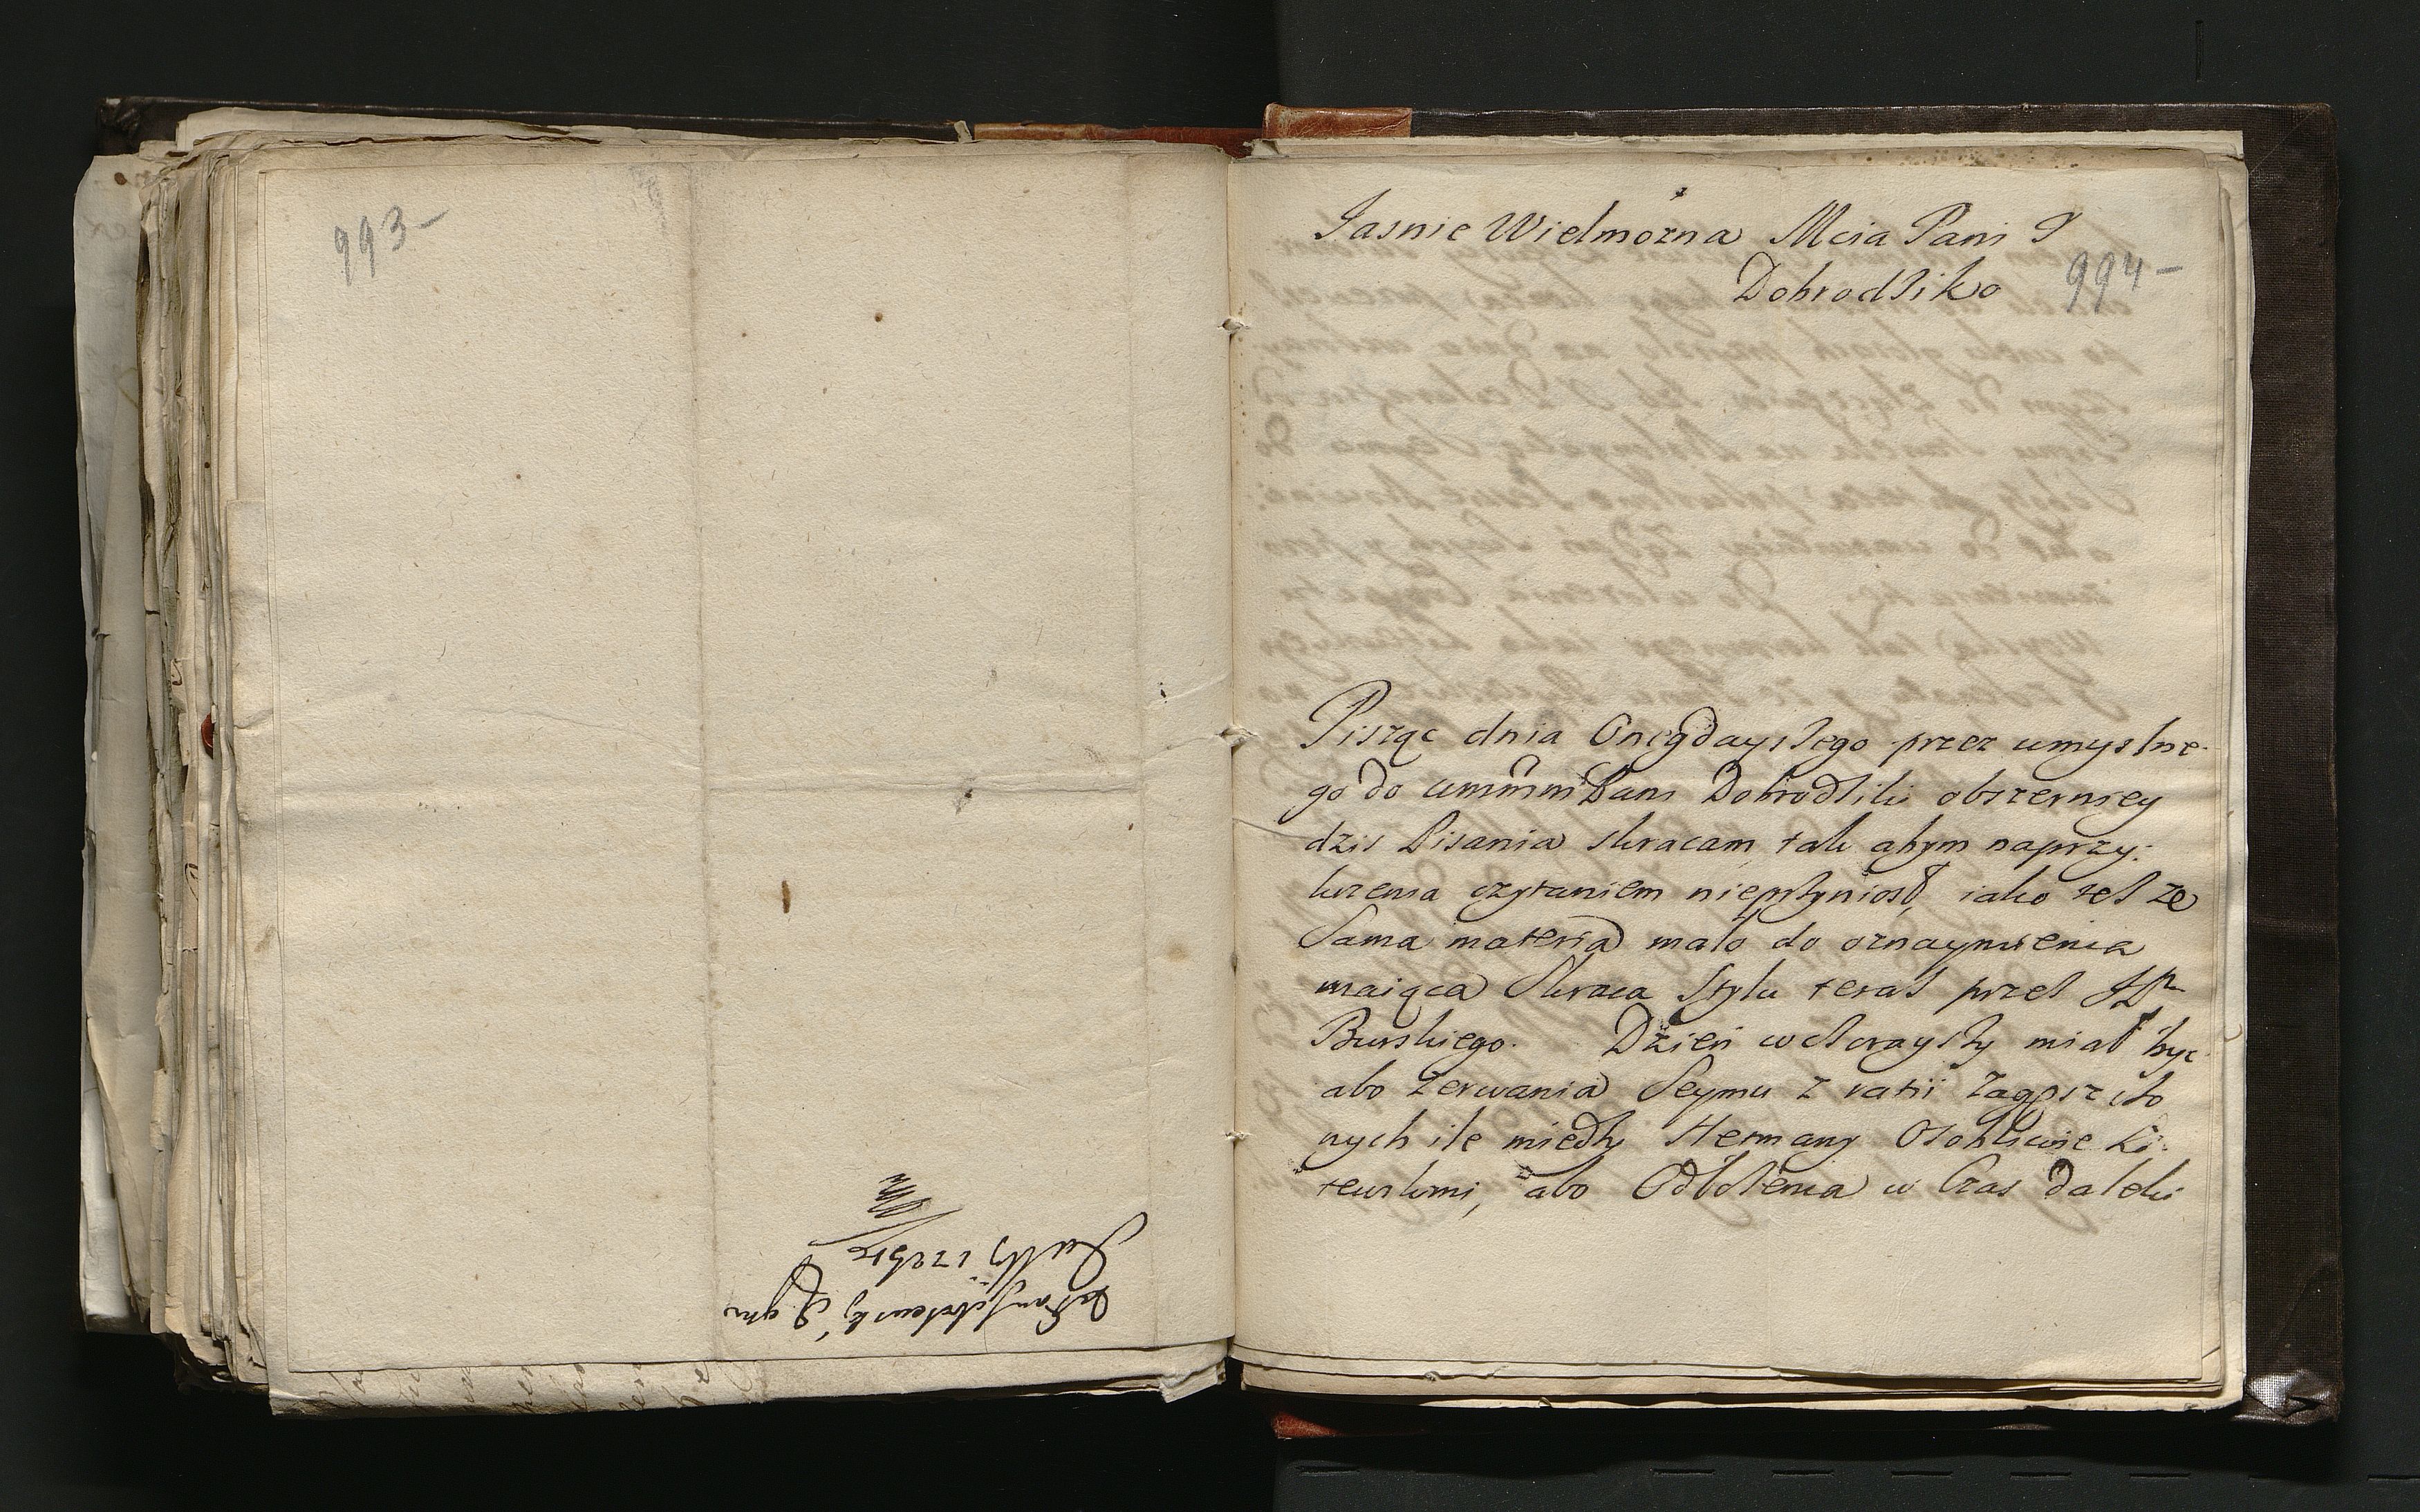 993-
Jasnie Wielmożna Mcia Pani J
Dobrodsiko
994-
Pisząc dnia Onegdayszego przez umyslne-
go do Pani Dobrodsiki obszerniey
dzis Pisania skracam, tak abym naprzy-
krzenia czytaniem nieprzyniosł, iako tesz ze
Sama materia mało do oznaymienia
maiąca skraca stylu teraz przez
Burskiego. Dzień wctorayszy miał byc
abo zerwania Seymu z ratii zagęszczo
nych ile miedzy Hetmany Osobliwie Li-
tewskimi, abo Odłolenia w Czas daleki